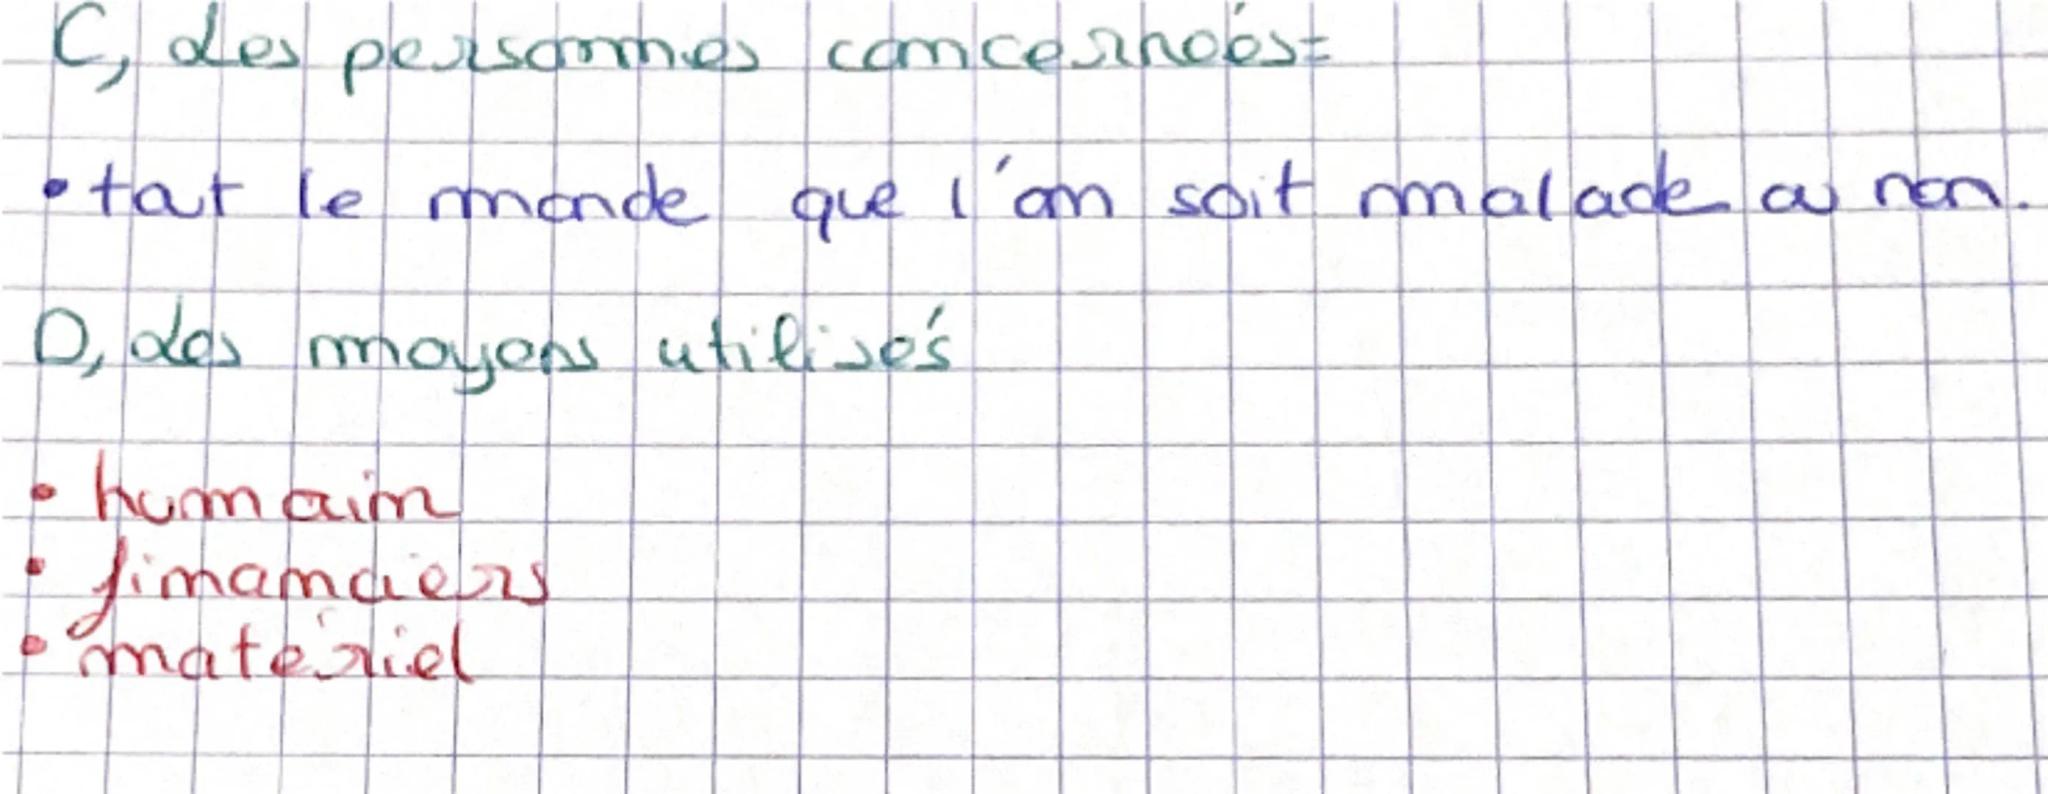 C, Les personnes concernées:
• tout le monde que l'on soit malade ou non.
D, Les moyens utilisés
• humain
• financiers
• matériel